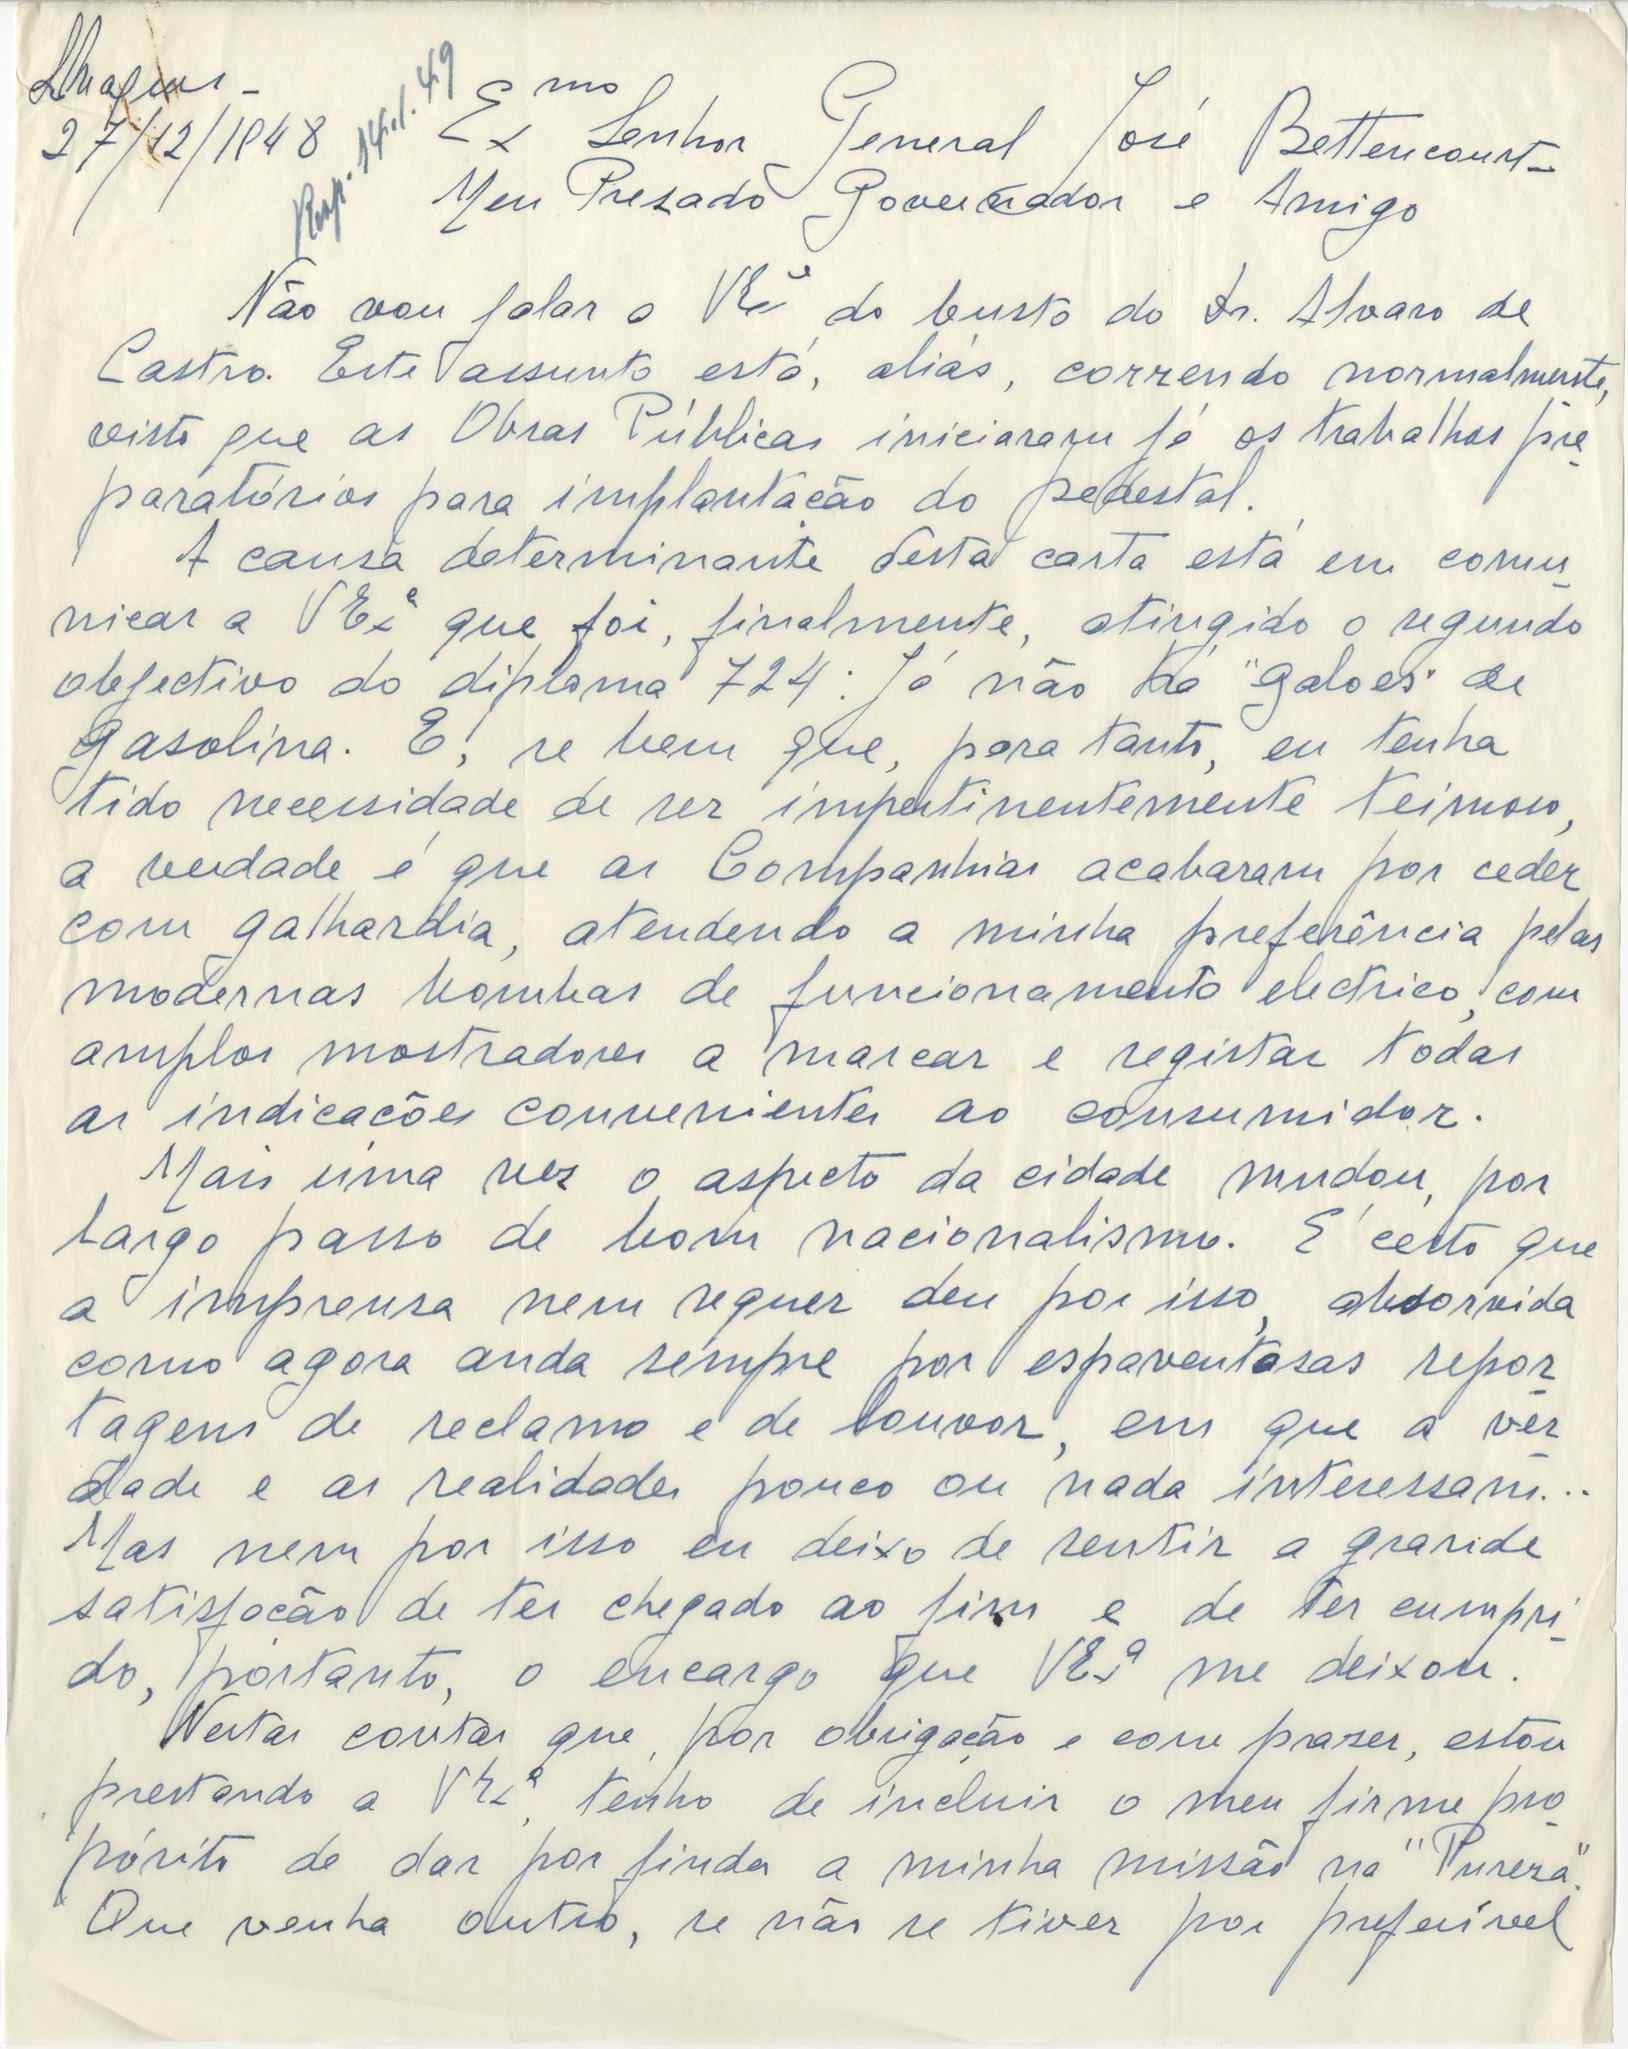 LMarques -
27/12/1948
Resp. 14.1.49
Exmo Senhor General José Bettencourt -
Meu Presado Governador e Amigo
Não vou falar a VExª do busto do Dr. Alvaro de
Castro. Este assunto está, aliás, correndo normalmente,
visto que as Obras Públicas iniciaram já os trabalhos pre-
paratórios para implantação do pedestal.
A causa determinante desta carta está em comu-
nicar a VExª que foi, finalmente, atingido o segundo
objectivo do diploma 724: Já não há "galoes" de
gasolina. E, se bem que, para tanto, eu tenha
tido necessidade de ser impertinentemente teimoso,
a verdade é que as Companhias acabaram por ceder
com galhardia, atendendo a minha preferência pelas
modernas bombas de funcionamento electrico, com
amplos mostradores a marcar e registar todas
as indicações convenientes ao consumidor.
Mais uma vez o aspecto da cidade mudou, por
largo passo de bom nacionalismo. É certo que
a imprensa nem sequer deu por isso, absorvida
como agora anda sempre por espaventosas repor-
tagens de reclamo e de louvor, em que a ver-
dade e as realidades pouco ou nada interessam...
Mas nem por isso eu deixo de sentir a grande
satisfação de ter chegado ao fim e de ter cumpri-
do, portanto, o encargo que VExª me deixou.
Nestas contas que, por obrigação e com prazer, estou
prestando a VExª, tenho de incluir o meu firme pro-
pósito de dar por finda a minha missão na "Pureza".
Que venha outro, se não se tiver por preferível